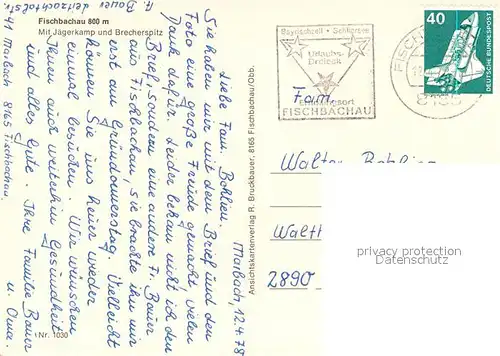 Fischbachau 800 m
Mit Jägerkamp und Brecherspitz
Marbach, 12.4.78
Liebe Fam. Bohlien.
Sie haben mir mit dem Brief und den
Foto eine große Freude gemacht vielen
Dank dafür. Leider bekam nicht ich den
Brief, sondern eine andere Fr. Bauer
aus Fischbachau, sie brachte ihn mir
erst am Gründonnerstag. Vielleicht
können Sie uns heuer wieder
einmal besuchen. Wir wünschen
Ihnen auch weiterhin Gesundheit
und alles Gute. Ihre Familie Bauer
u. Oma.
Fr. Bauer
41 Marbach 8165 Fischbachau.
Nr. 1030
Ansichtskartenverlag R. Bruckbauer, 8165 Fischbachau/Obb.
Bayrischzell - Schliersee
Urlaubs-
Dreieck
Erholungsort
FISCHBACHAU
40
DEUTSCHE BUNDESPOST
8165
Fam.
Walter
Walth
2890
privacy protection